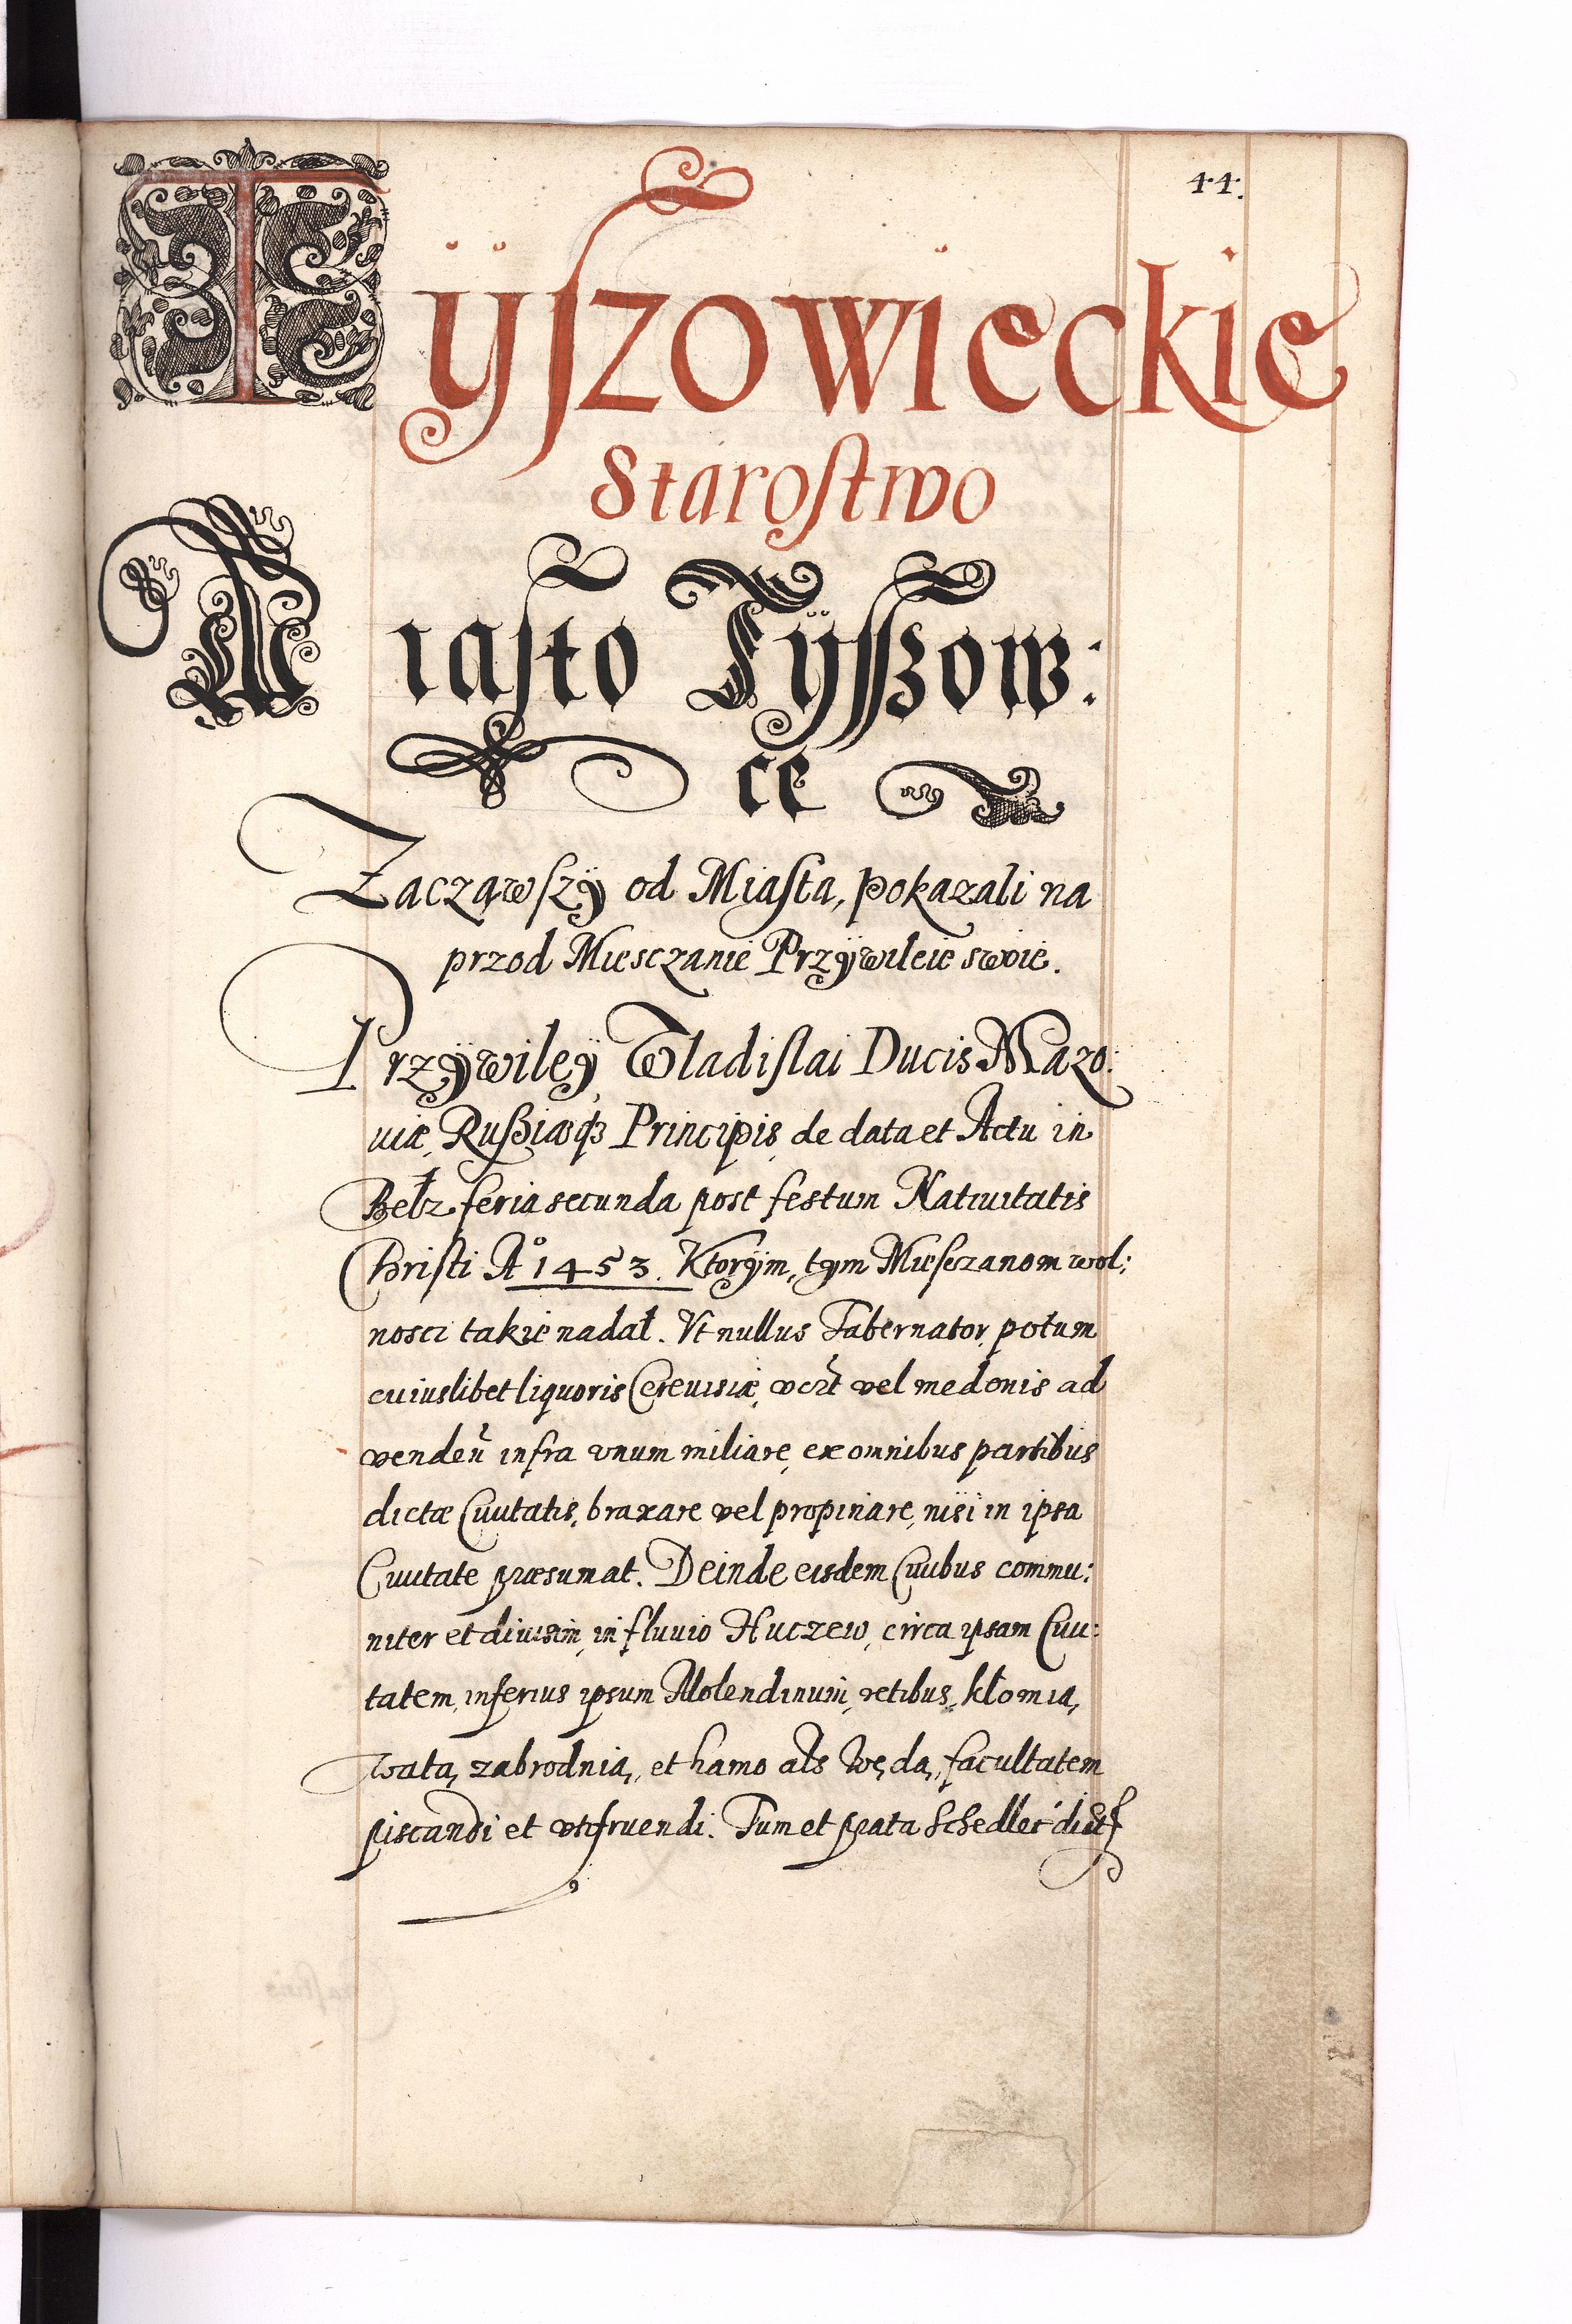 44.
Tÿſzowieckie
Staroſtwo
Miaſto Tÿſſzow:
ce
Zacząwſzÿ od Miaſta, pokazali na
przod Miesczanie Przÿwileie swoie.
Przÿwileÿ Wladiſlai Ducis Mazo:
uiæ, Rußiæqꝫ Principis, de data et Actu in
Bełz feria secunda post festum Natiuitatis
Chriſti Aº 1453. Ktorÿm, tym Mieſczanom wol:
nosci takie nadał. Vt nullus Tabernator, potum
cuiuslibet liquoris Cereuisiæ, vel medonis ad
venden̄ infra vnum miliare, ex omnibus partibus
dictæ Ciuitatis, braxare vel propinare, nisi in ipsa
Ciuitate præsumat. Deinde eisdem Ciuibus commu:
niter et diuisim, in fluuio Huczew, circa ipsam Ciui:
tatem, inferius ipsum Molendinum, retibus, kłomią,
watą, zabrodnią, et hamo als Wędą, facultatem
piscandi et vtifruendi. Tum et prata Schedlec